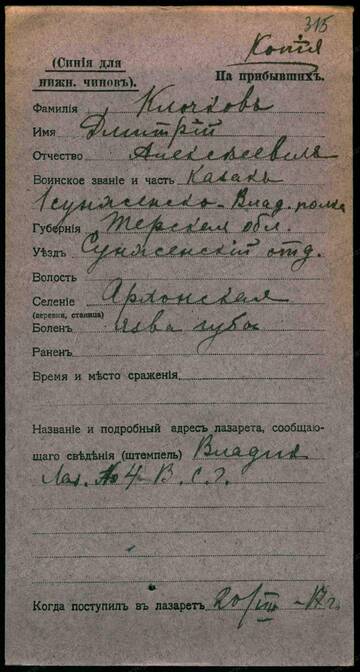 315
Копія
(Синія для
нижн. чиновъ).
На прибывшихъ.
Фамилія Клочковъ
Имя Дмитрій
Отчество Алексѣевичъ
Воинское званіе и часть казакъ
1 Сунженско-Влад. полка
Губернія Терская обл.
Уѣздъ Сунженскій отд.
Волость
Селеніе Архонская
(деревня, станица)
Боленъ язва губы
Раненъ
Время и мѣсто сраженія
Названіе и подробный адресъ лазарета, сообщаю-
щаго свѣдѣнія (штемпель) Владик
Лаз. № 4 В. С. Г.
Когда поступилъ въ лазаретъ 20/III - 17 г.